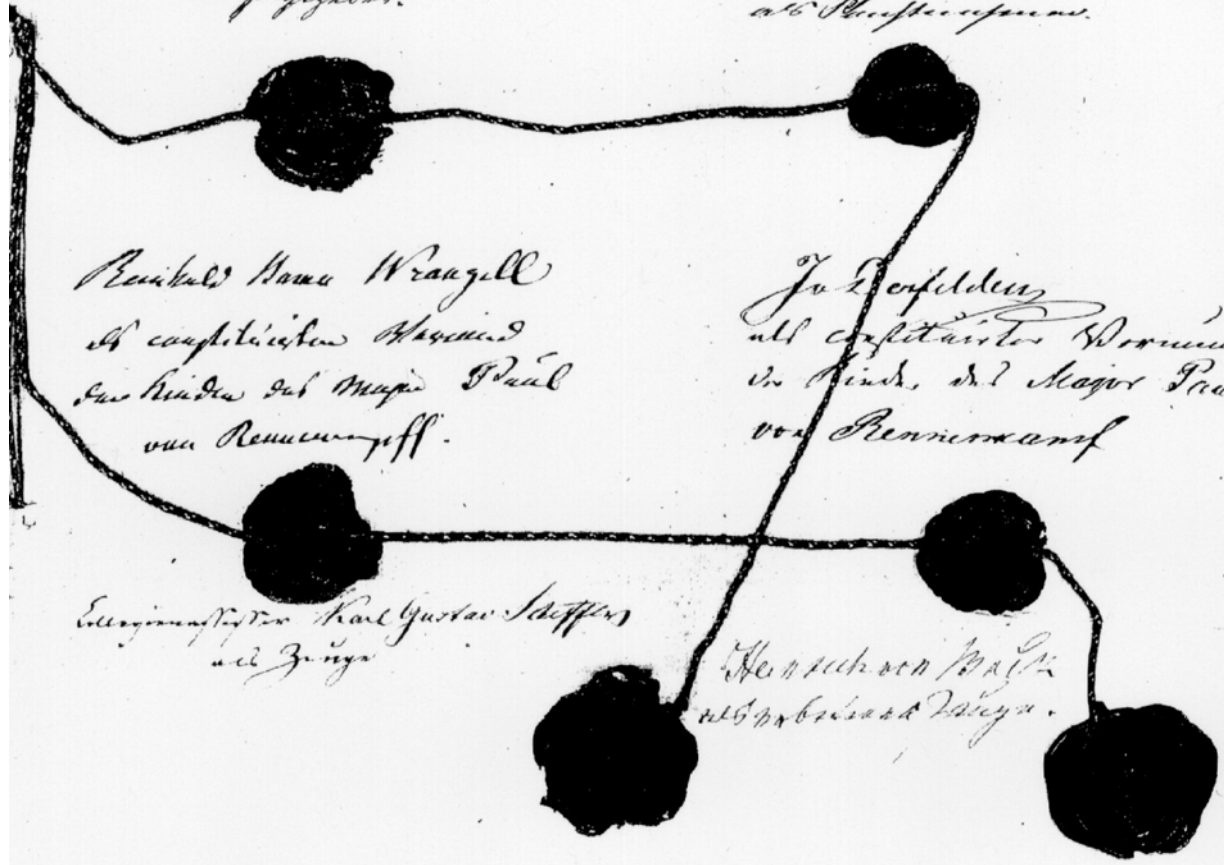 als
Reinhold Baron Wrangell
als constituirter Vormund
der Kinder des Major Paul
von Rennenkampff.
als constituirter Vormun
der Kinder des Major Pau
von Rennenkampf
Collegienassessor Karl Gustav
als Zeuge
Heinrich von
als erbetener Zeuge.